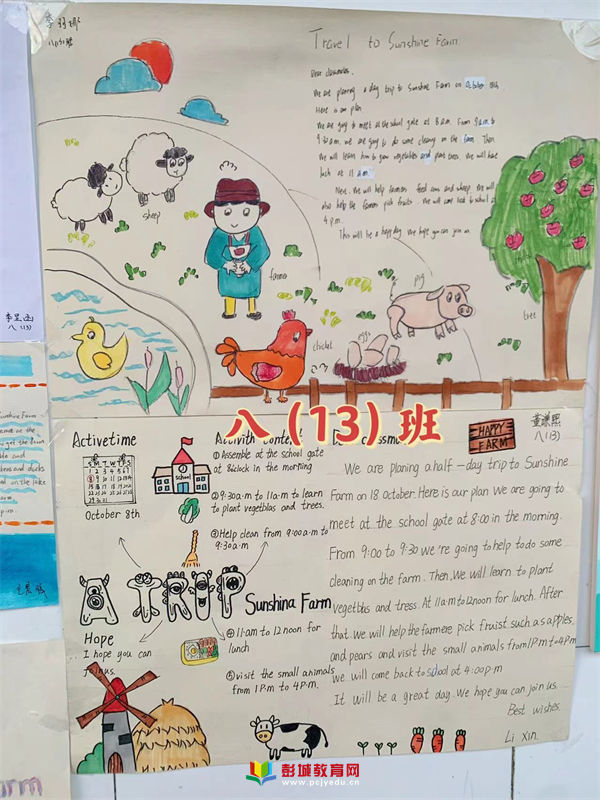 八(13)班
Travel to Sunshine Farm.
Dear classmates.
We are planning a day trip to Sunshine Farm on October 18th.
Here is our plan.
We are going to meet at the school gate at 8 a.m. From 9 a.m to
9:30 a.m. we are going to do some cleaning on the farm. Then
We will learn how to grow vegetables and plant trees. We will have
lunch at 11 a.m.
Next. We will help farmers feed cows and sheep. We will
also help the farmers pick fruits. We will come back to school at
4 p.m.
This will be a happy day. We hope you can join us.
sheep
farmer
pig
chicket
eggs
tree
李昱函
八(13)
Sunshine Farm
八(13)班
Activetime
October 8th
School
Activity Content
①Assemble at the school gate
at 8o'clock in the morning
②9:30a.m to 11a.m to learn
to plant vegetblas and trees.
③Help clean from 9:00a.m to
9:30a.m
A TRIP
Sunshina Farm
④11am to 12noon for
lunch
⑤visit the small animals
from 1P.m to 4P.m.
Hope
I hope you can
Join us.
HAPPY
FARM
八(13)
We are planing a half-day trip to Sunshine
Farm on 18 October. Here is our plan. We are going to
meet at the school gate at 8:00 in the morning.
From 9:00 to 9:30 we're going to help to do some
cleaning on the farm. Then. We will learn to plant
vegetbles and tress. At 11a.m to 12noon for lunch. After
that. We will help the farmere pick fruist such as apples
and pears and visit the small animals from 1P.m to 4P.m
we will come back to school at 4:00p.m
It will be a great day. We hope you can join us.
Best wishes.
Li Xin.
彭城教育网
www.pcjyedu.cn